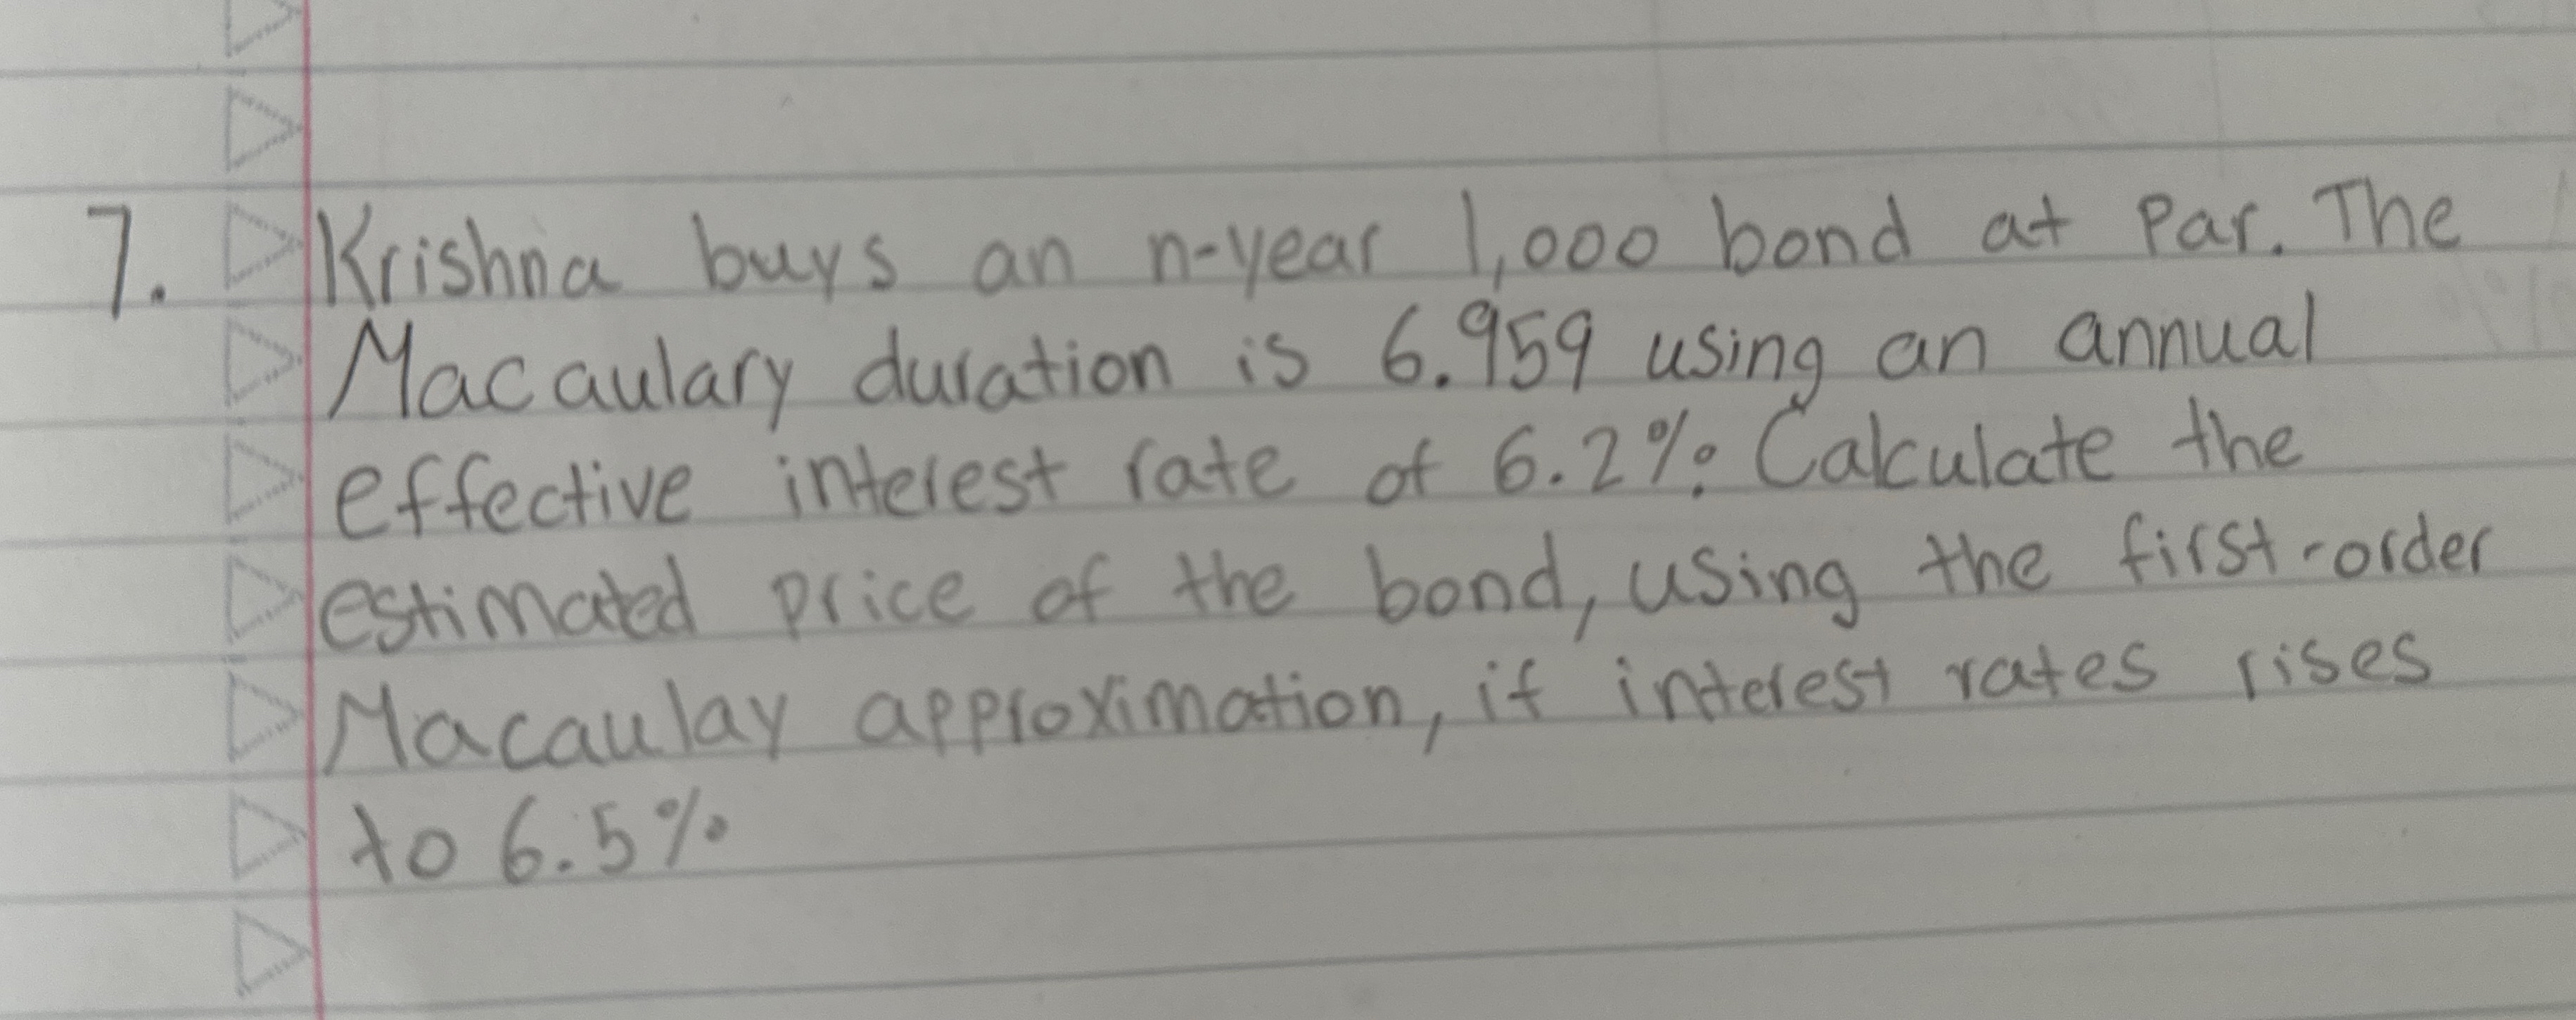 7. Krishna buys an n-year 1,000 bond at Par. The
Macaulary duration is 6.959 using an annual
effective interest rate of 6.2%. Calculate the
estimated price of the bond, using the first-order
Macaulay approximation, if interest rates rises
to 6.5%